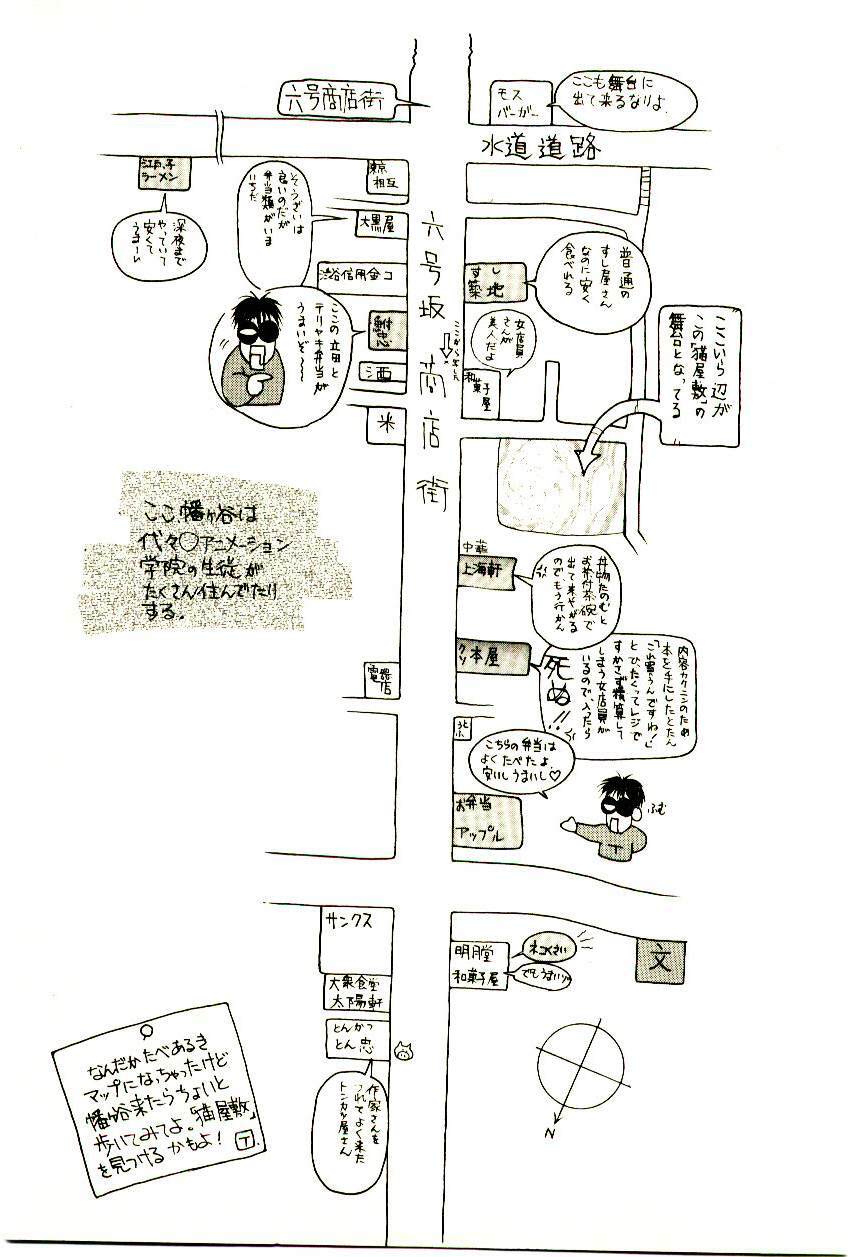 六号商店街
モス
バーガー
ここも舞台に
出て来るなりよ.
水道道路
江戸っ子
ラーメン
深夜まで
やっていて
安くて
うまーい
東京
相互
大黒屋
そうざいは
良いのだが
弁当類がいま
いちだ
渋谷信用金コ
ここの立田と
テリヤキ弁当が
うまいぞ〜〜
酒
米
六号坂商店街
すし
築地
普通の
すし屋さん
なのに安く
食べれる
女店員
さんが
美人だよ
和菓子屋
ここいら辺が
この「猫屋敷」の
舞台となってる
ここ、幡ヶ谷は
代々〇アニメーション
学院の生徒が
たくさん住んでたり
する。
中華
上海軒
丼物たのむと
お茶付茶碗で
出て来やがる
のでもう行かん
本屋
内容カクニンのため
本を手にしたとたん
「これ買うんですね!」
とひったくってレジで
すかさず精算して
しまう女店員が
いるので、入ったら
死ぬ!!
電器店
こちらの弁当は
よくたべたよ
安いしうまいし♡
お弁当
アップル
ふむ
T
サンクス
明月堂
和菓子屋
ネコくさい
でもうまいッ
文
大衆食堂
太陽軒
とんかつ
とん忠
作家さんを
つれてよく来た
トンカツ屋さん
N
なんだかたべあるき
マップになっちゃったけど
幡ヶ谷来たらちょいと
歩いてみてよ。「猫屋敷」
を見つけるかもよ! T.